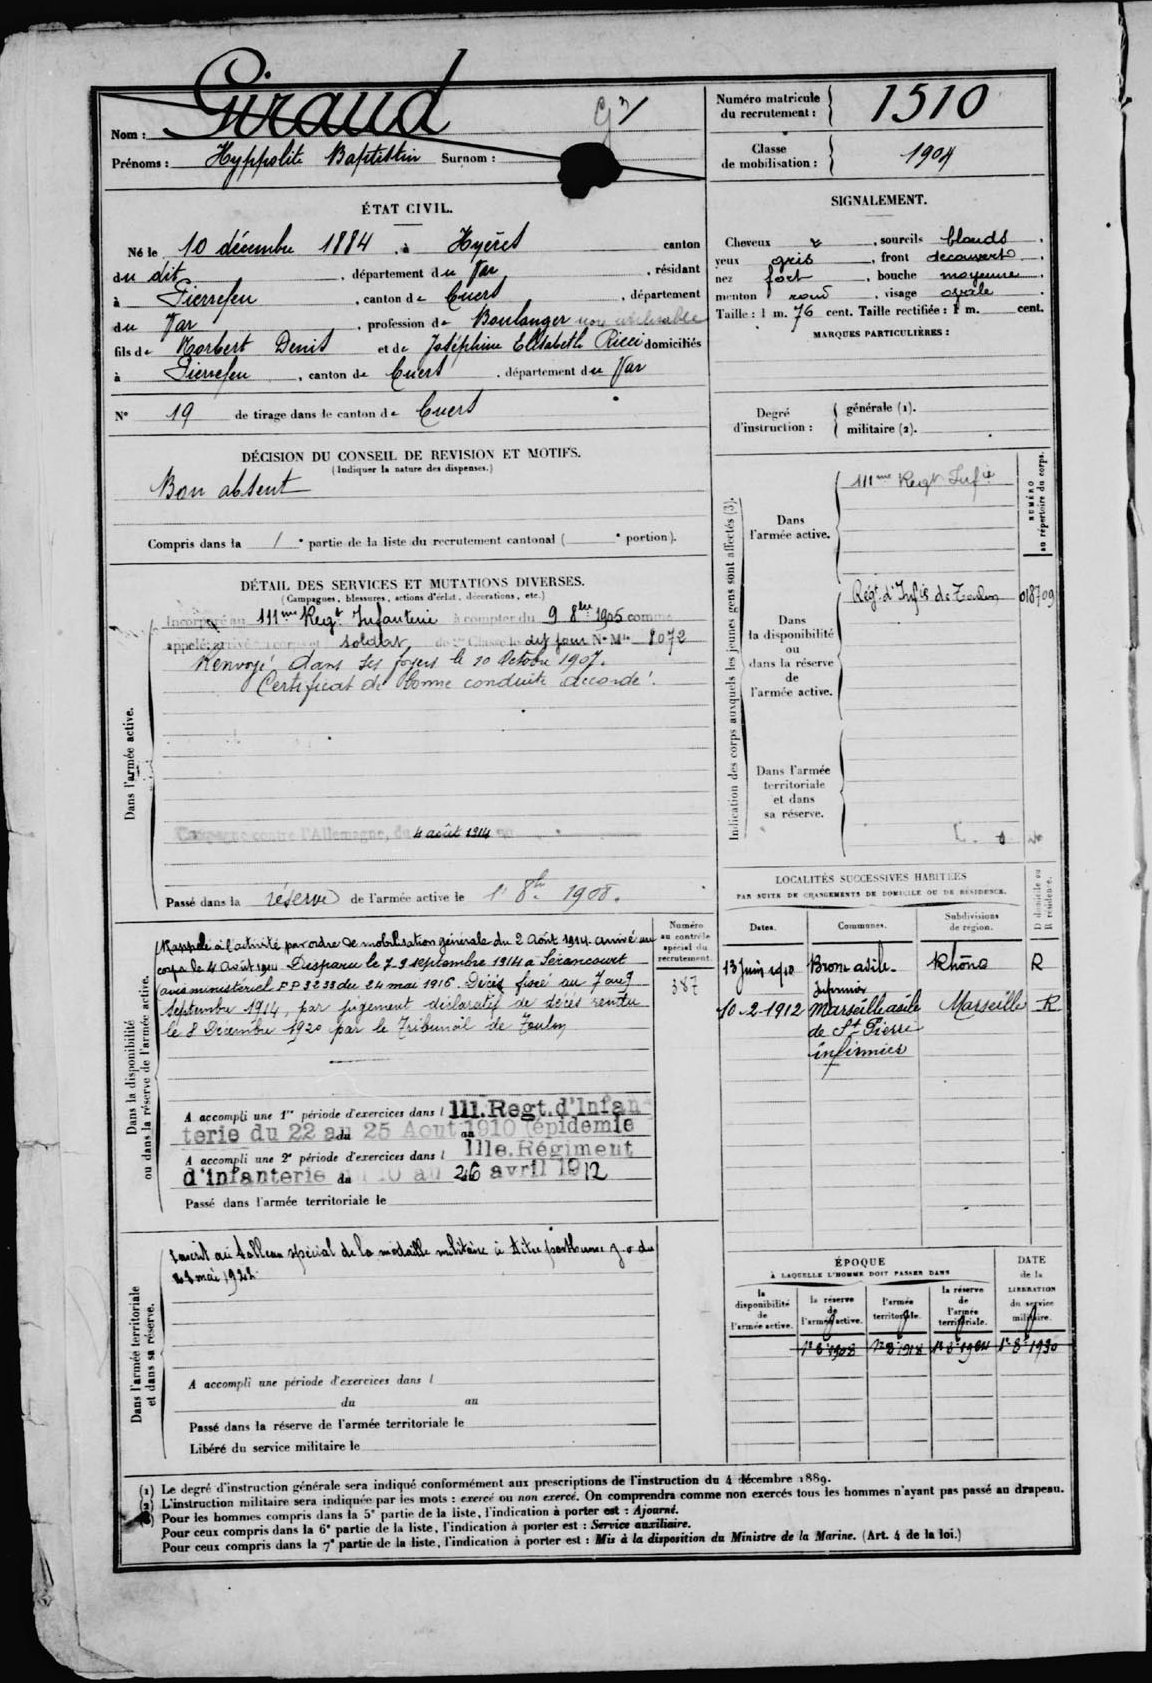 Nom : Giraud
Prénoms : Hyppolite Baptistin Surnom :
Numéro matricule du recrutement : 1510
Classe de mobilisation : 1904
ÉTAT CIVIL.
Né le 10 décembre 1884, à Hyères canton
du dit, département du Var, résidant
à Pierrefeu, canton de Cuers, département
du Var, profession de Boulanger
fils de Norbert Denis et de Joséphine Elisabeth Ricci domiciliés
à Pierrefeu, canton de Cuers, département du Var
N° 19 de tirage dans le canton de Cuers
SIGNALEMENT.
Cheveux &, sourcils blonds.
yeux gris, front découvert.
nez fort, bouche moyenne.
menton rond, visage ovale.
Taille : 1 m. 76 cent. Taille rectifiée : 1 m. cent.
MARQUES PARTICULIÈRES :
Degré d'instruction :
générale (1).
militaire (2).
DÉCISION DU CONSEIL DE REVISION ET MOTIFS.
(Indiquer la nature des dispenses.)
Bon absent
Compris dans la 1e partie de la liste du recrutement cantonal ( e portion).
DÉTAIL DES SERVICES ET MUTATIONS DIVERSES.
(Campagnes, blessures, actions d'éclat, décorations, etc.)
Dans l'armée active.
Incorporé au 111me Regt Infanterie à compter du 9 8bre 1905 comme
appelé; soldat de 2e Classe le dit jour N° Mle 8072
Renvoyé dans ses foyers le 20 Octobre 1907.
Certificat de bonne conduite accordé.
Campagne contre l'Allemagne, du 4 août 1914 au
Passé dans la réserve de l'armée active le 1r 8bre 1908.
Indication des corps auxquels les jeunes gens sont affectés (3).
NUMÉRO au répertoire du corps.
Dans l'armée active.
111me Regt Infie
Dans la disponibilité ou dans la réserve de l'armée active.
Régt d'Infie de Toulon 018709
Dans l'armée territoriale et dans sa réserve.
LOCALITÉS SUCCESSIVES HABITÉES
PAR SUITE DE CHANGEMENTS DE DOMICILE OU DE RÉSIDENCE.
Dates. Communes. Subdivisions de région. D domicile ou R résidence.
13 Juin 1910 Bron asile Rhône R
Infirmier
10-2-1912 Marseille asile Marseille R
de St Pierre
infirmier
Dans la disponibilité ou dans la réserve de l'armée active.
Numéro au contrôle spécial du recrutement.
387
Rappelé à l'activité par ordre de mobilisation générale du 2 Août 1914 arrivé au
corps le 4 Août 1914 Disparu le 7-9 septembre 1914 à Sérancourt
avis ministériel F.P 3233 du 24 mai 1916. Décès fixé au 7 au 9
septembre 1914, par jugement déclaratif de décès rendu
le 8 Decembre 1920 par le Tribunal de Toulon
A accompli une 1re période d'exercices dans l 111.Regt.d'Infan
terie du 22 au 25 Aout 1910 (épidemie
A accompli une 2e période d'exercices dans l 111e.Régiment
d'infanterie du 10 au 26 avril 1912
Passé dans l'armée territoriale le
Dans l'armée territoriale et dans sa réserve.
Inscrit au tableau spécial de la médaille militaire à titre posthume J.O du
A accompli une période d'exercices dans l
du au
Passé dans la réserve de l'armée territoriale le
Libéré du service militaire le
ÉPOQUE
À LAQUELLE L'HOMME DOIT PASSER DANS
DATE de la LIBÉRATION du service militaire.
la disponibilité de l'armée active. la réserve de l'armée active. l'armée territoriale. la réserve de l'armée territoriale.
1r 8e 1908 1r 8e 1918 1r 8e 1924 1r 8e 1930
(1) Le degré d'instruction générale sera indiqué conformément aux prescriptions de l'instruction du 4 décembre 1889.
(2) L'instruction militaire sera indiquée par les mots : exercé ou non exercé. On comprendra comme non exercés tous les hommes n'ayant pas passé au drapeau.
Pour les hommes compris dans la 5e partie de la liste, l'indication à porter est : Ajourné.
Pour ceux compris dans la 6e partie de la liste, l'indication à porter est : Service auxiliaire.
Pour ceux compris dans la 7e partie de la liste, l'indication à porter est : Mis à la disposition du Ministre de la Marine. (Art. 4 de la loi.)